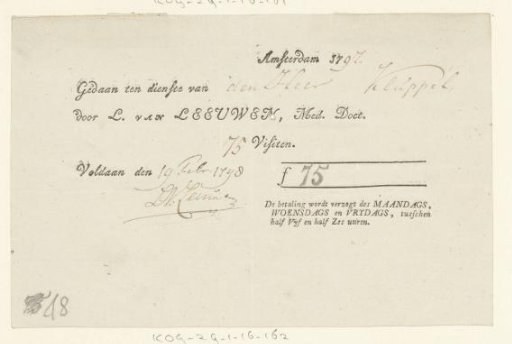 KOG-2G-1-16-161
Amsterdam 1797.
Gedaan ten dienste van den Heer Kluppel
door L. VAN LEEUWEN, Med. Doct.
75 Visiten.
Voldaan den 19 Febr 1798
ƒ 75
De betaling werdt verzogt des MAANDAGS,
WOENSDAGS en VRYDAGS, tusschen
half Vijf en half Zes uuren.
18
KOG-2G-1-16-162